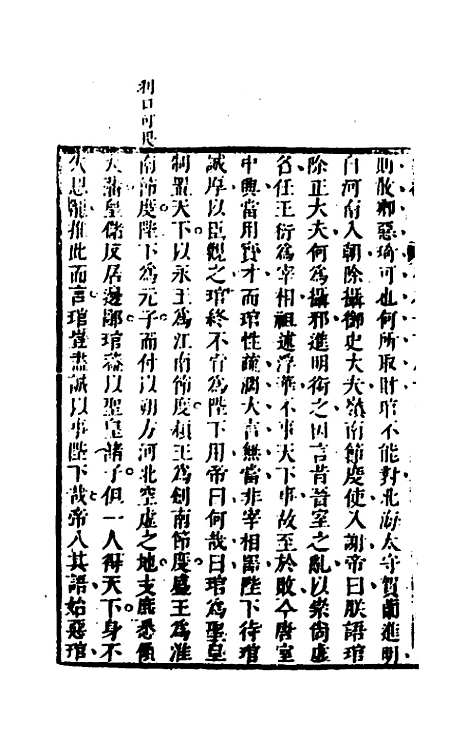 利口可畏
則故卿惡琦可也何所取財琯不能對北海太守賀蘭進明
自河南入朝除攝御史大夫嶺南節度使入謝帝曰朕語琯
除正大夫何為攝邪進明銜之因言昔晉室之亂以崇尚虛
名任王衍為宰相祖述浮華不事天下事故至於敗今唐室
中興當用實才而琯性疏濶大言無當非宰相器陛下待琯
誠厚以臣觀之琯終不肯為陛下用帝曰何哉曰琯為聖皇
制置天下以永王為江南節度潁王為劍南節度盛王為淮
南節度陛下為元子而付以朔方河北空虛之地支庶悉領
大藩皇儲反居邊鄙琯葢以聖皇諸子但一人得天下身不
失恩寵推此而言琯豈盡誠以事陛下哉帝入其語始惡琯